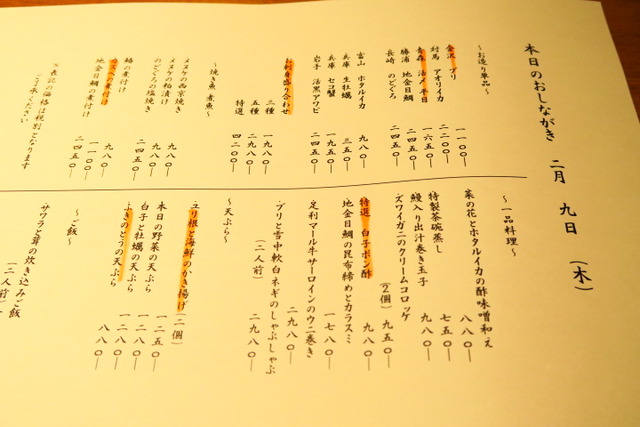 本日のおしながき 二月 九日 (木)
～お造り単品～
金沢 ブリ 一一〇〇―
対馬 アオリイカ 二二〇〇―
青森 活〆平目 一六五〇―
勝浦 地金目鯛 二四五〇―
長崎 のどぐろ 二四五〇―
富山 ホタルイカ 九八〇―
兵庫 生牡蠣 三五〇―
兵庫 セコ蟹 一九五〇―
岩手 活黒アワビ 二四五〇―
お刺身盛り合わせ
三種 一九八〇―
五種 二九八〇―
特選 四二〇〇―
～焼き魚 煮魚～
メヌケの西京焼き 九八〇―
メヌケの粕漬け 九八〇―
のどぐろの塩焼き 二四五〇―
の煮付け 九八〇―
カスベの煮付け 一一〇〇―
地金目鯛の煮付け 二四五〇―
※表記の価格は税別となります
ご了承ください
～一品料理～
菜の花とホタルイカの酢味噌和え 八八〇―
特製茶碗蒸し 七五〇―
鰻入り出汁巻き玉子 九八〇―
ズワイガニのクリームコロッケ (2個) 九五〇―
特選 白子ポン酢 九八〇―
地金目鯛の昆布締めとカラスミ 一七八〇―
足利マール牛サーロインのウニ巻き 二九八〇―
ブリと雪中軟白ネギのしゃぶしゃぶ
(二人前) 二九八〇―
～天ぷら～
ユリ根と海鮮のかき揚げ (二個) 一二五〇―
本日の野菜の天ぷら 一二八〇―
白子と牡蠣の天ぷら 一二八〇―
ふきのとうの天ぷら 八八〇―
～ご飯～
サワラと茸の炊き込みご飯
(二人前)